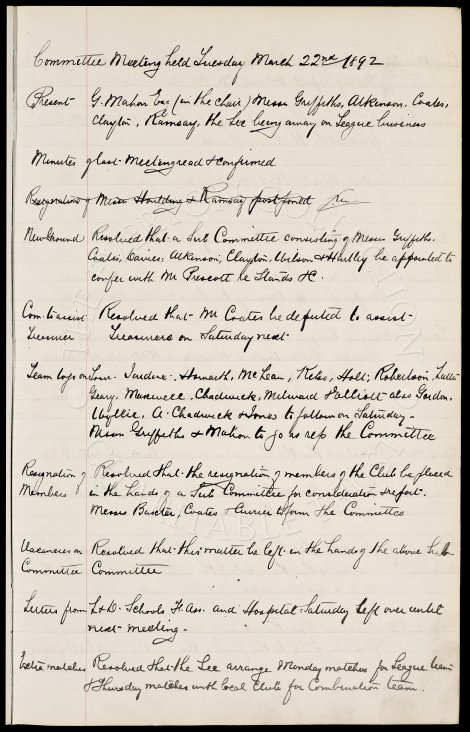 Committee Meeting held Tuesday March 22nd 1892
Present G. Mahon Esq (in the chair) Messrs Griffiths, Atkinson, Coates,
Clayton, Ramsay, the Sec being away on League business
Minutes of last Meeting read & confirmed
Resignation of Messrs Houlding & Ramsay postponed
New Ground Resolved that a Sub Committee consisting of Messrs Griffiths,
Coates, Davies, Atkinson, Clayton, Wilson & Hartley be appointed to
confer with Mr Prescott re Stands &c.
Com to assist Resolved that Mr Coates be deputed to assist
Treasurer Treasurers on Saturday next
Team Jardine, Howarth, McLean, Kelso, Holt, Robertson, Latta
Geary, Maxwell, Chadwick, Milward & Elliott also Gordon,
Wyllie, A. Chadwick & Jones to follow on Saturday -
Messrs Griffiths & Mahon to go as reps the Committee
Resignation of Resolved that the resignation of members of the Club be placed
Members in the hands of a Sub Committee for consideration & report.
Messrs Baxter, Coates & Currier to form the Committee
Vacancies on Resolved that this matter be left in the hands of the above Sub
Committee Committee
Letters from L & D. Schools F. Ass. and Hospital Saturday left over until
next meeting.
Extra matches Resolved that the Sec arrange Monday matches for League team
& Thursday matches with local clubs for Combination team.